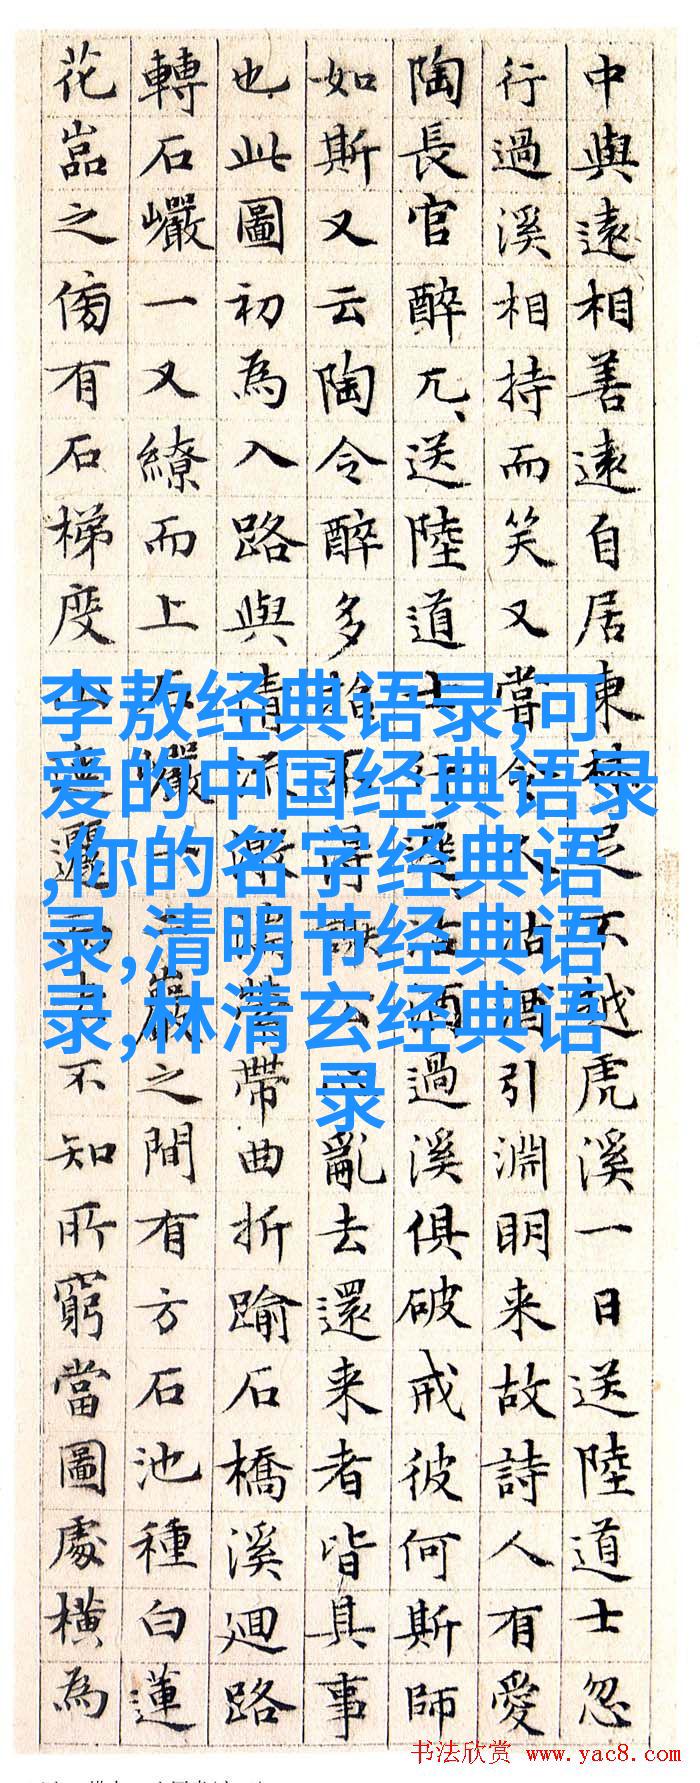 中與遠相善遠自居東林足不越虎溪一日送陸道士忽
行過溪相持而笑又嘗令人沽酒引淵明来故詩人有愛
陶長官醉兀、送陸道士行遲沽酒過溪俱破戒彼何斯師
如斯又云陶令醉多招不得謝公心亂去還来者皆具事
也此圖初為入路與清流激湍縈帶曲折踰石橋溪迴路
轉石巖一又繚而上石巖巖之間有方石池種白蓮
花嵓之傍有石梯度邐而去不知所窮當圖處横為
李敖经典语录,可
爱的中国经典语录
,你的名字经典语
录,清明节经典语
录,林清玄经典语
录
书法欣赏 www.yac8.com